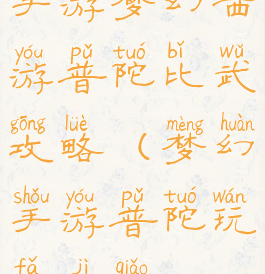 手 游 梦 幻 西
yóu pǔ tuó bǐ wǔ
游 普 陀 比 武
gōng lüè mèng huàn
攻 略 （ 梦 幻
shǒu yóu pǔ tuó wán
手 游 普 陀 玩
fǎ jì qiǎo